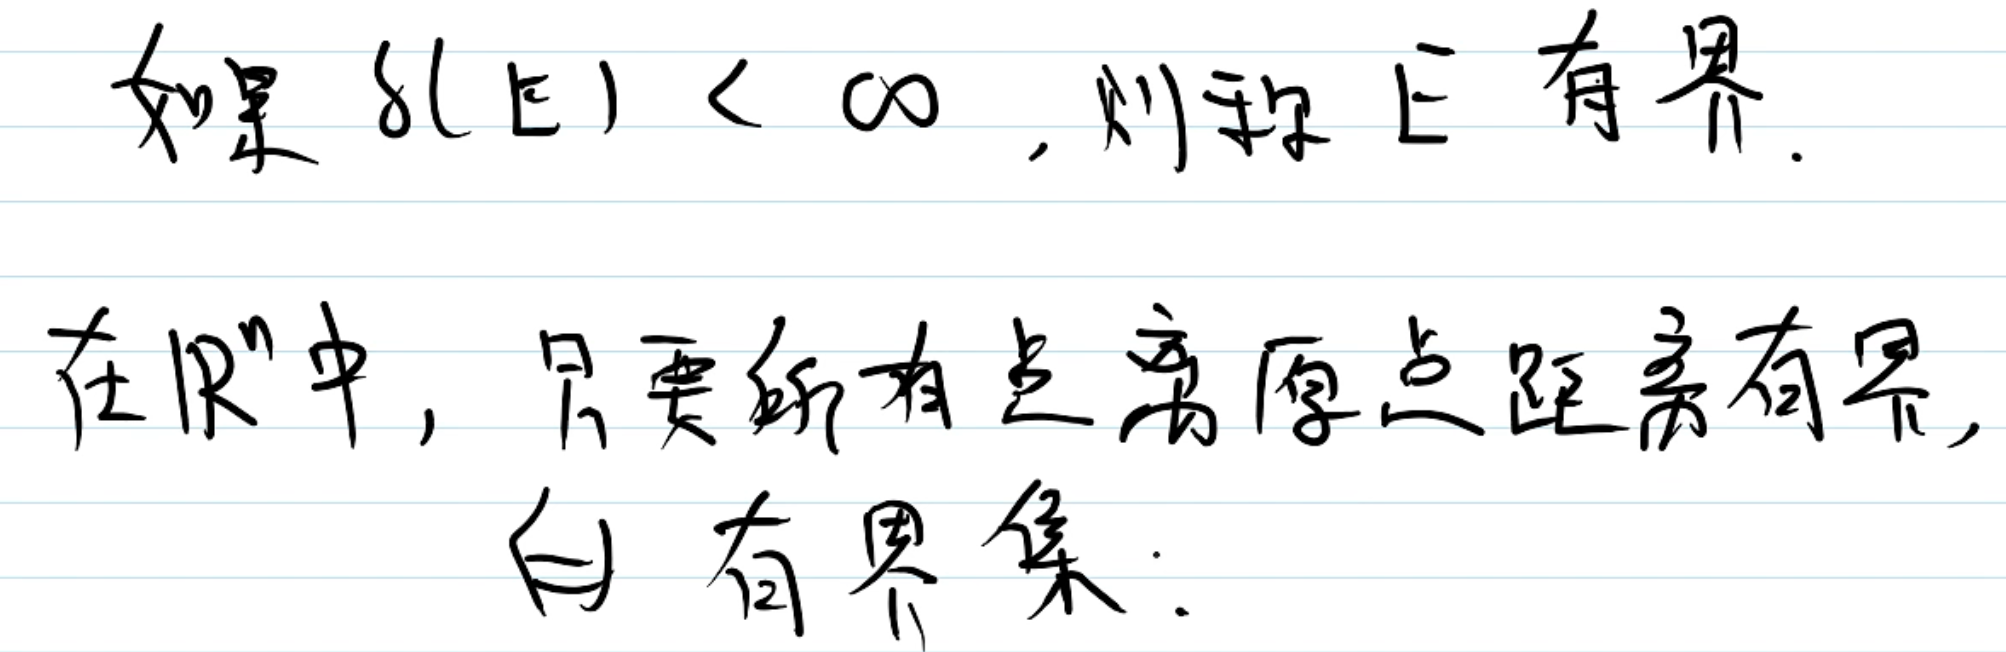 如果 δ(E) < ∞, 则称 E 有界.
在 ℝⁿ 中, 只要所有点离原点距离有界,
⇔ 有界集.